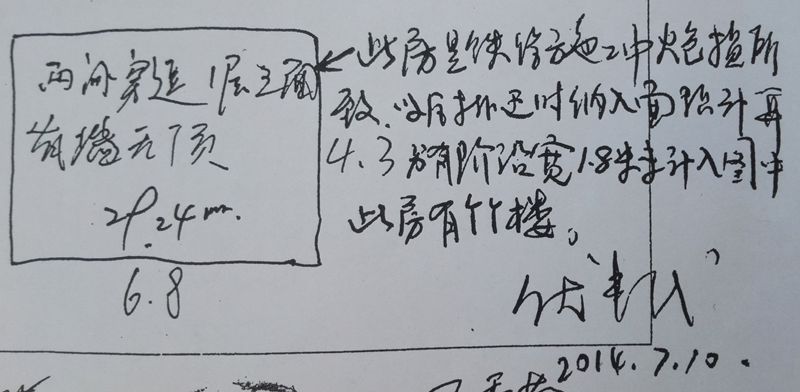 两间穿逗 1层三面
有墙无顶
29.24m².
6.8
此房是铁路施工中炮损所
致.以后拆迁时纳入面积计算
4.3 另有阶沿宽1.8米未计入图中
此房有个个楼。
2014.7.10.